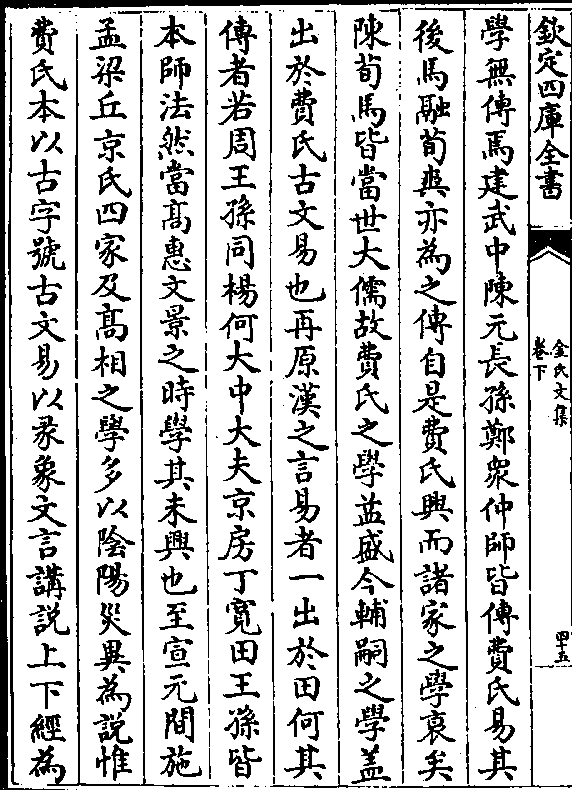 欽定四庫全書
金氏文集
卷下
四十五
學無傳焉建武中陳元長孫鄭衆仲師皆傳費氏易其
後馬融荀爽亦為之傳自是費氏興而諸家之學衰矣
陳荀馬皆當世大儒故費氏之學益盛今輔嗣之學盖
出於費氏古文易也再原漢之言易者一出於田何其
傳者若周王孫同楊何大中大夫京房丁寛田王孫皆
本師法然當髙惠文景之時學其未興也至宣元間施
孟梁丘京氏四家及髙相之學多以陰陽災異為說惟
費氏本以古字號古文易以彖象文言講説上下經為